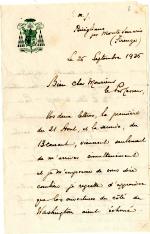 Perignano
par Monte
(Firenze)
Le 25 Septembre 1926
Bien cher Monsieur
le Professeur,
Vos deux lettres, la première
du 21 Août, et la dernière, du
viennent seulement
de m'arriver
et je m'empresse de vous dire
combien je regrette d'apprendre
que les ouvertures du côté de
Washington aient échoué